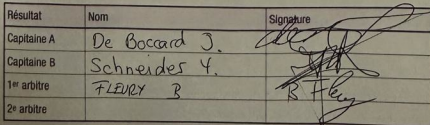 Résultat Nom Signature
Capitaine A De Boccard J.
Capitaine B Schneider Y.
1er arbitre FLEURY B B Fleury
2e arbitre